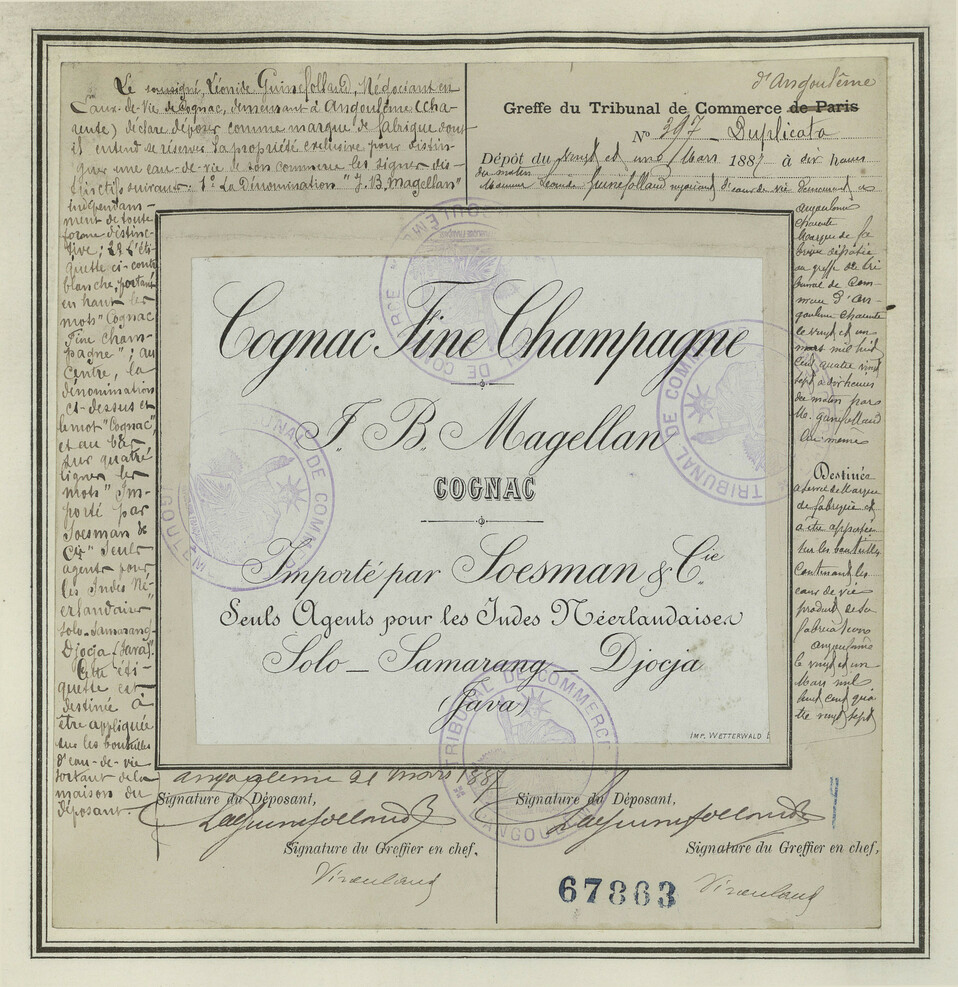 Le soussigné, Léonide Guinefolland, Négociant en
Eaux-de-Vie de Cognac, demeurant à Angoulême (Cha-
rente) déclare déposer comme marque de fabrique dont
il entend se réserver la propriété exclusive pour distin-
guer une eau-de-vie de son commerce les signes dis-
tinctifs suivants: 1º La Dénomination "J. B. Magellan"
indépendam-
ment de toute
forme distinc-
tive; 2º L'éti-
quette ci-contre
blanche, portant
en haut les
mots "Cognac
Fine Cham-
pagne"; au
centre, la
dénomination
ci-dessus et
le mot "Cognac",
et au bas
sur quatre
lignes les
mots "Im-
porté par
Soesman &
Cie" Seuls
agents pour
les Indes Né-
erlandaises
Solo-Samarang-
Djocja (Java)".
Cette éti-
quette est
destinée à
être appliquée
sur les bouteilles
d'eau-de-vie
sortant de la
maison du
déposant.
d'Angoulême
Greffe du Tribunal de Commerce de Paris
Nº 397 - Duplicata
Dépôt du vingt et un Mars 1887 à dix heures
du matin
Monsieur Léonide Guinefolland négociant d'eaux de vie demeurant à
angoulême
charente
Marque de fa
brique déposée
au greffe du tri
bunal de Com
merce d'An
goulême Charente
le vingt et un
mars mil huit
cent quatre vingt
sept à dix heures
du matin par
M. Guinefolland
lui même
Destinée
à servir de Marque
de fabrique et
à être apposée
sur les bouteilles
contenant les
eaux de vie
produit de sa
fabrication
angoulême
le vingt et un
Mars mil
huit cent qua
tre vingt sept
Cognac Fine Champagne
J. B. Magellan
COGNAC
Importé par Soesman & Cie.
Seuls Agents pour les Indes Néerlandaises
Solo _ Samarang _ Djocja
(Java)
IMP. WETTERWALD
TRIBUNAL DE COMMERCE
D'ANGOULEME
angoulême 21 mars 1887
Signature du Déposant,
Signature du Déposant,
Guinefolland
Guinefolland
Signature du Greffier en chef.
Signature du Greffier en chef,
67863